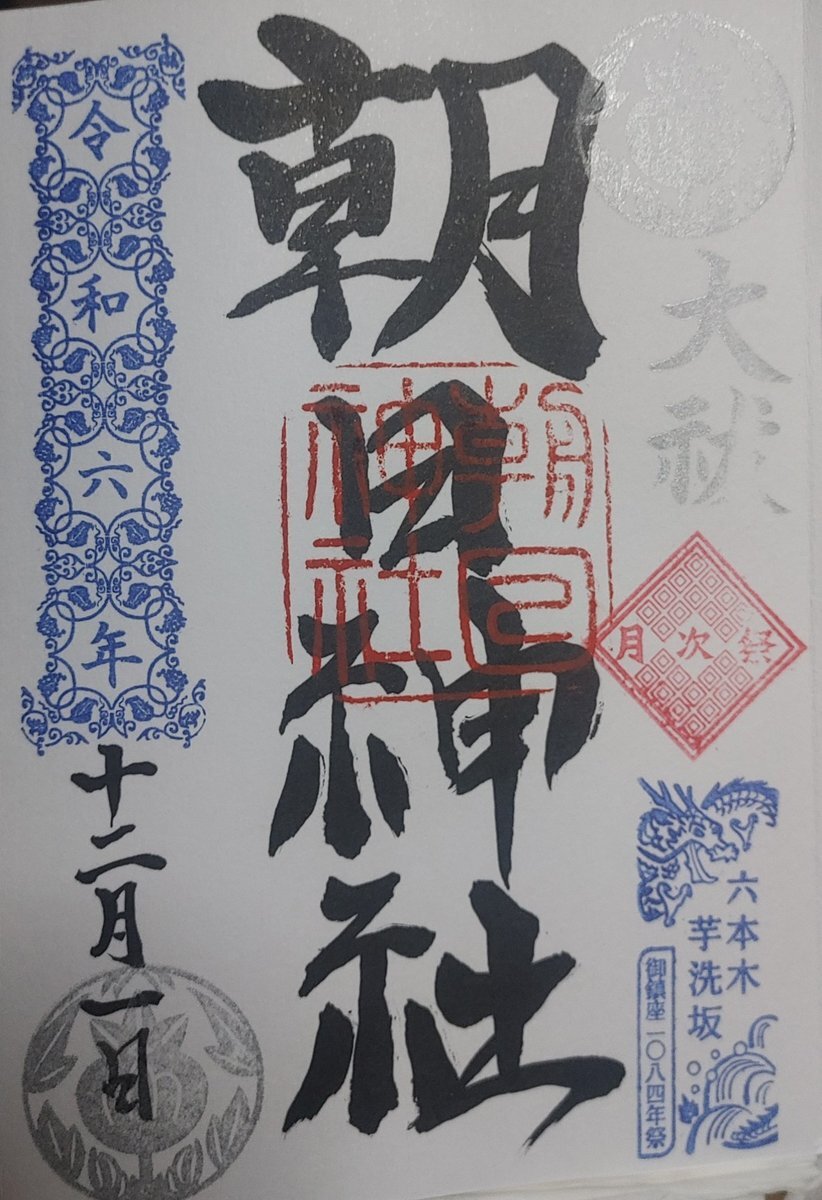 大祓
月次祭
六本木
芋洗坂
御鎮座一〇八四年祭
朝日神社
朝日
神社
令和六年
十二月一日